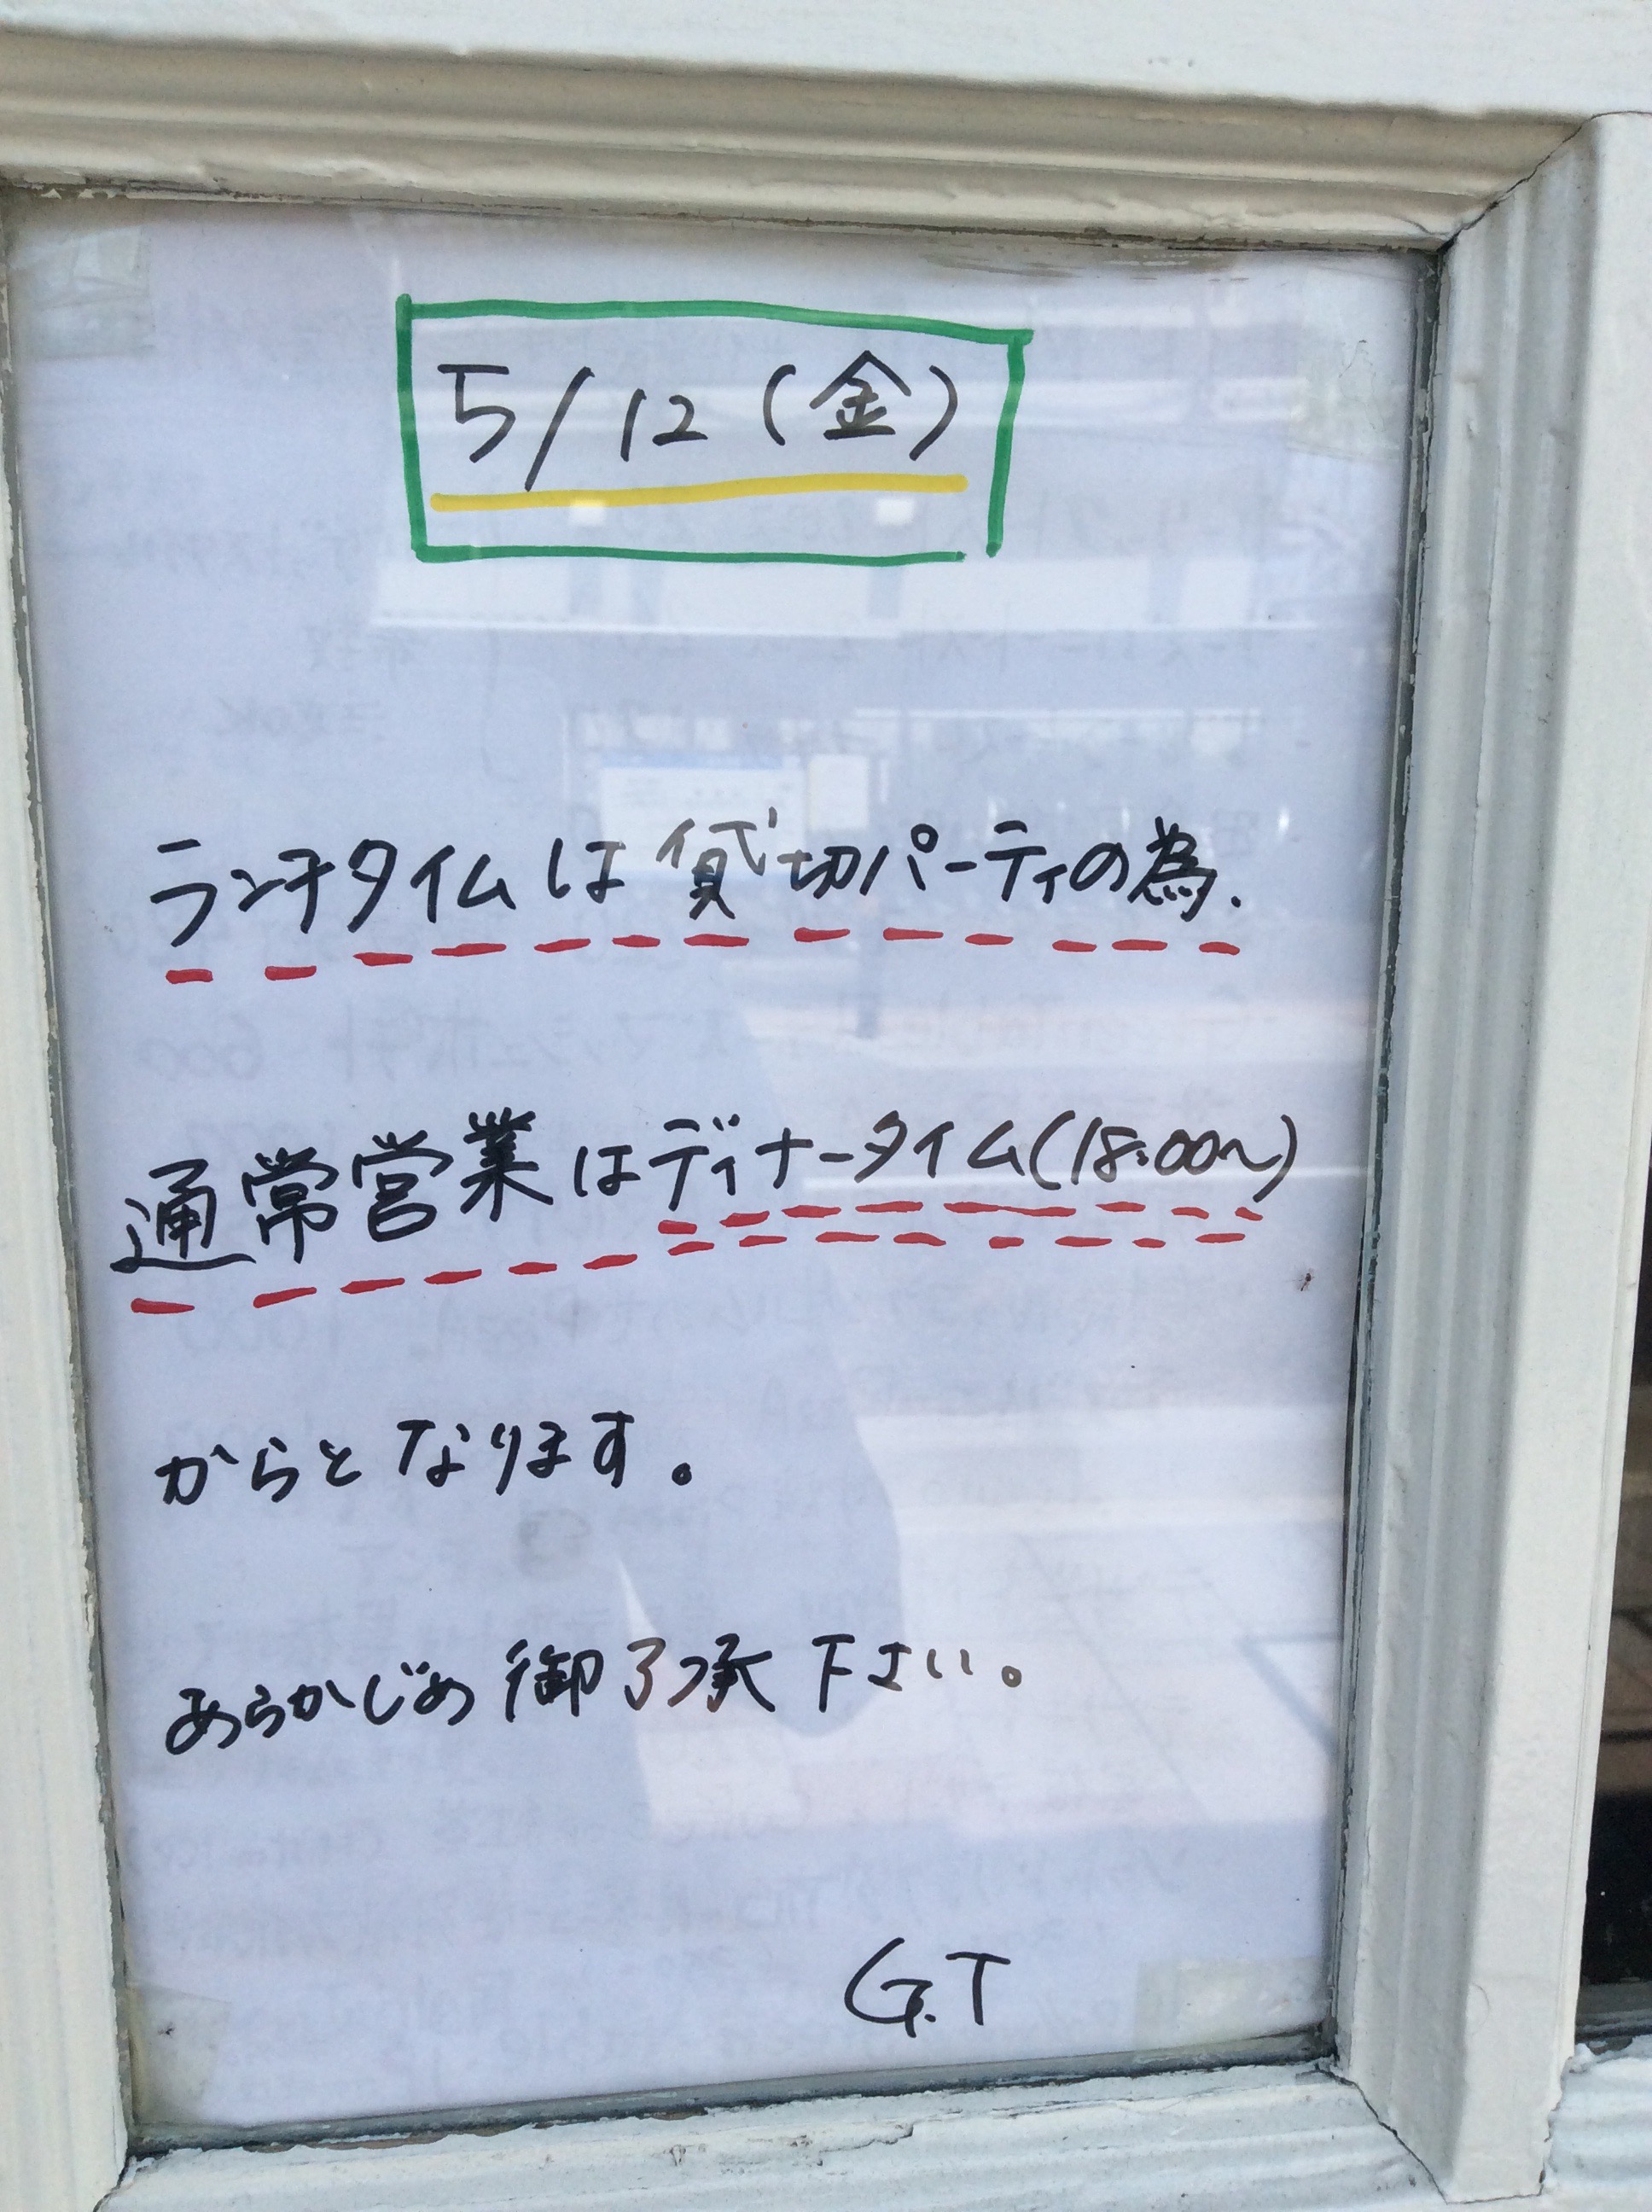 5/12(金)
ランチタイムは貸切パーティの為.
通常営業はディナータイム(18:00〜)
からとなります。
あらかじめ御了承下さい。
G.T